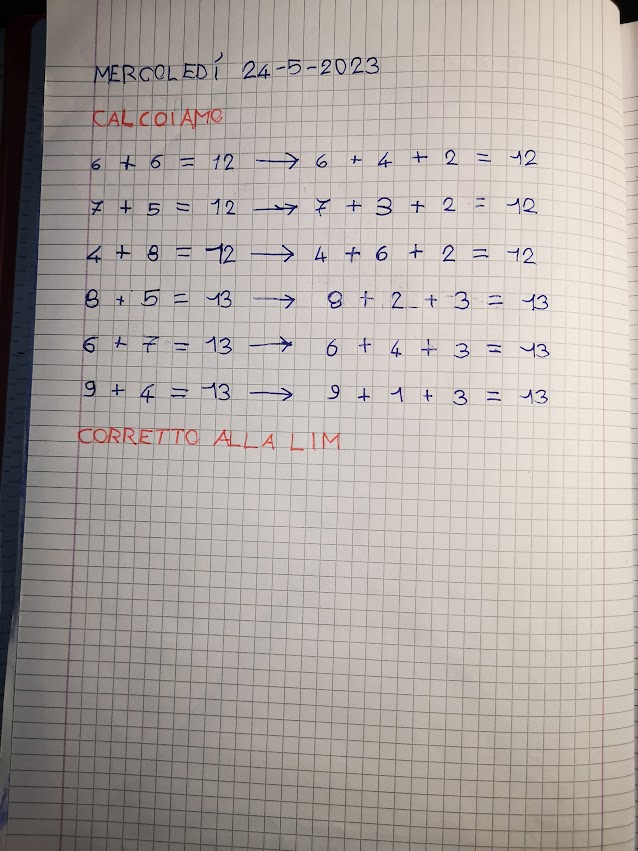 MERCOLEDÍ 24-5-2023
CALCOIAMO
6 + 6 = 12 → 6 + 4 + 2 = 12
7 + 5 = 12 → 7 + 3 + 2 = 12
4 + 8 = 12 → 4 + 6 + 2 = 12
8 + 5 = 13 → 8 + 2 + 3 = 13
6 + 7 = 13 → 6 + 4 + 3 = 13
9 + 4 = 13 → 9 + 1 + 3 = 13
CORRETTO ALLA LIM